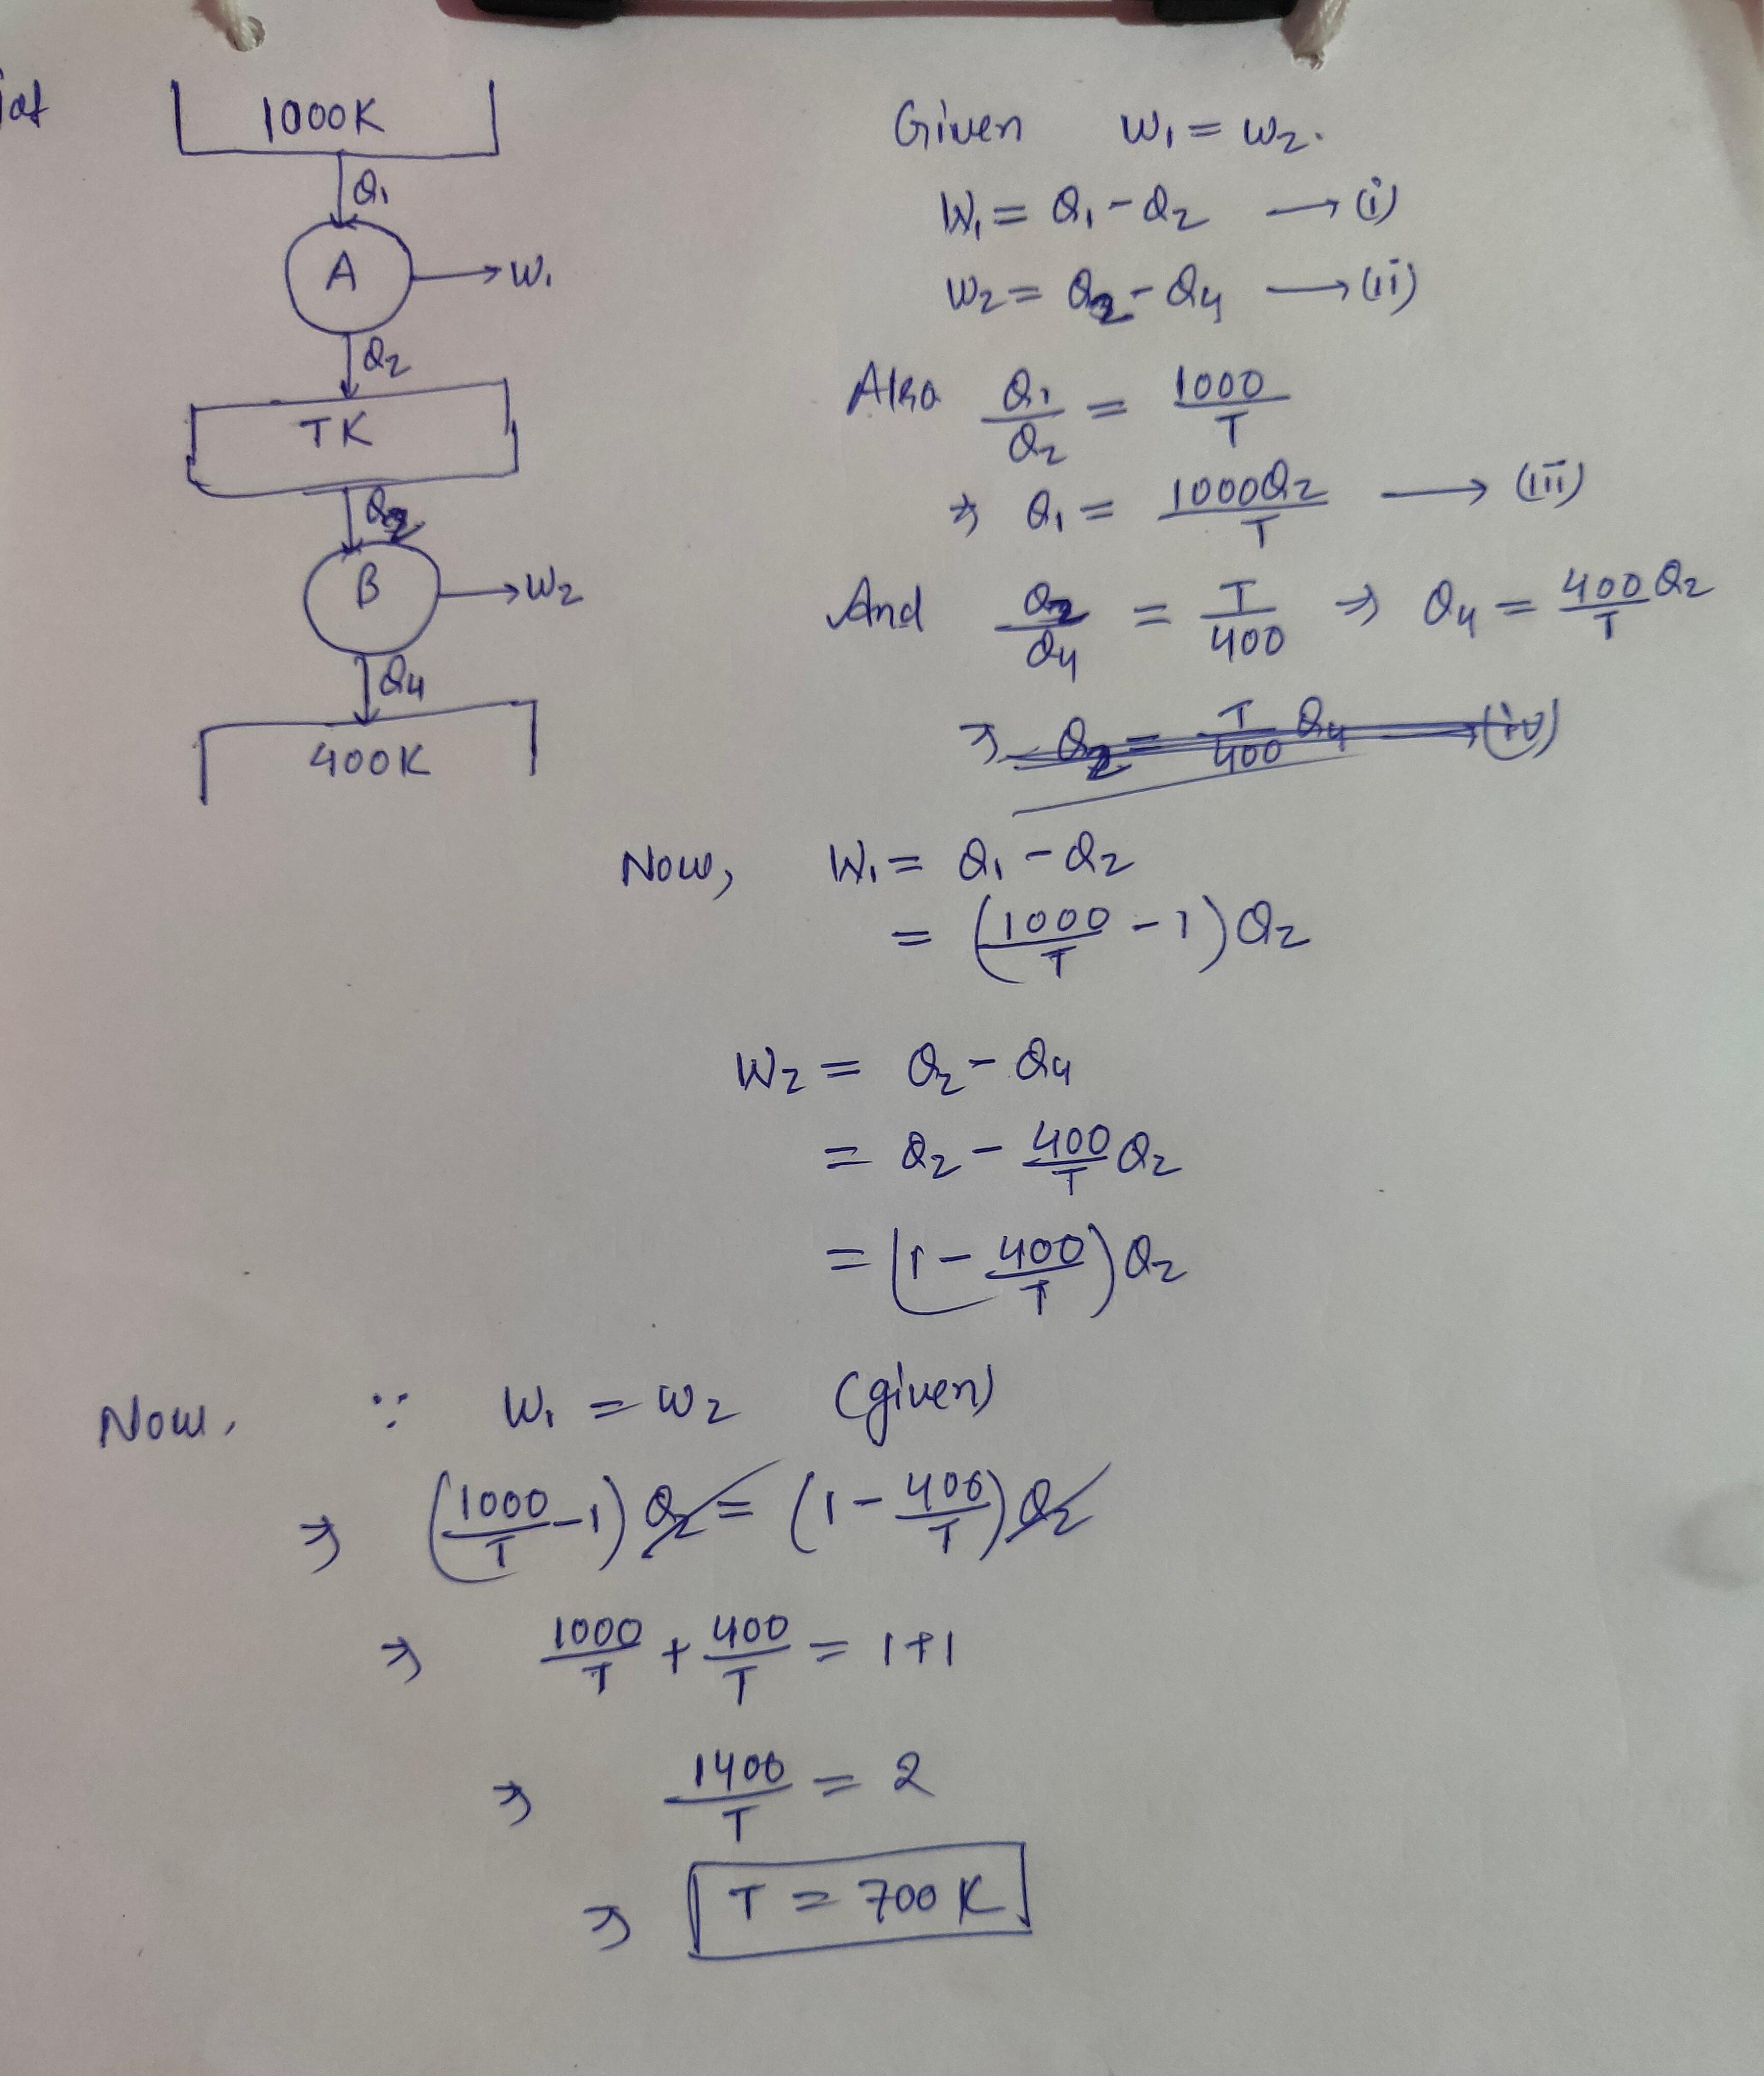 1000K
Q₁
A → W₁
Q₂
TK
Q₂
B → W₂
Q₄
400K
Given W₁ = W₂.
W₁ = Q₁ - Q₂ → (i)
W₂ = Q₂ - Q₄ → (ii)
Also Q₁/Q₂ = 1000/T
⇒ Q₁ = 1000Q₂/T → (iii)
And Q₂/Q₄ = T/400 ⇒ Q₄ = 400/T Q₂
⇒ Q₂ = T/400 Q₄ → (iv)
Now, W₁ = Q₁ - Q₂
= (1000/T - 1) Q₂
W₂ = Q₂ - Q₄
= Q₂ - 400/T Q₂
= (1 - 400/T) Q₂
Now, ∵ W₁ = W₂ (given)
⇒ (1000/T - 1) Q₂ = (1 - 400/T) Q₂
⇒ 1000/T + 400/T = 1+1
⇒ 1400/T = 2
⇒ T = 700 K